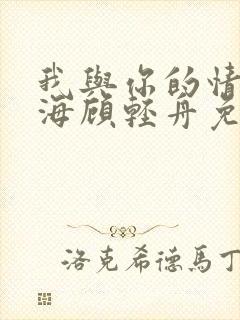 我與你的情
海顧輕舟免
洛克希德馬丁